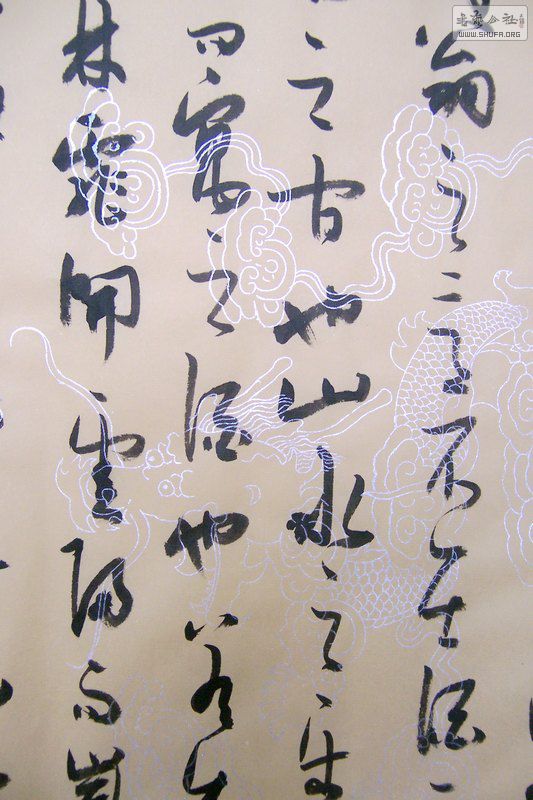 翁之意不在酒
之间也山水之乐
而寓之酒也若夫
林霏开云归而岩
书艺公社
WWW.SHUFA.ORG